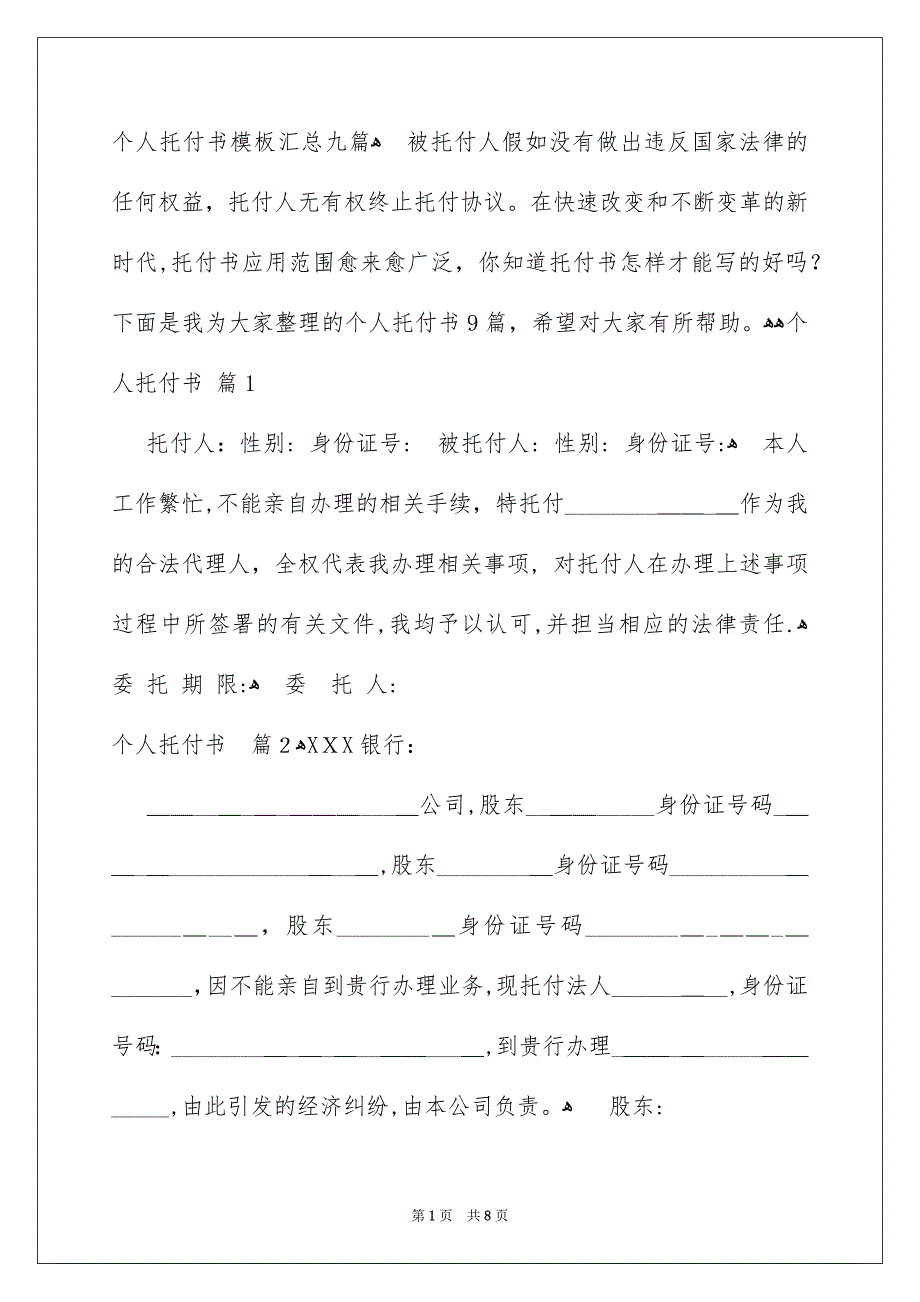 个人托付书模板汇总九篇ﻫ　被托付人假如没有做出违反国家法律的
任何权益，托付人无有权终止托付协议。在快速改变和不断变革的新
时代,托付书应用范围愈来愈广泛，你知道托付书怎样才能写的好吗？
下面是我为大家整理的个人托付书9篇，希望对大家有所帮助。ﻫﻫ个
人托付书 篇1
托付人：性别: 身份证号:　被托付人: 性别: 身份证号:ﻫ　本人
工作繁忙,不能亲自办理的相关手续，特托付_______________作为我
的合法代理人，全权代表我办理相关事项, 对托付人在办理上述事项
过程中所签署的有关文件,我均予以认可,并担当相应的法律责任.ﻫ
委 托 期 限:ﻫ　委　托 人:
个人托付书　篇2ﻫXXX银行：
_______________________公司,股东___________身份证号码___
_______________________,股东__________身份证号码____________
_____________，股东__________身份证号码___________________
_______，因不能亲自到贵行办理业务,现托付法人__________,身份证
号码：___________________________,到贵行办理_________________
_____,由此引发的经济纠纷,由本公司负责。ﻫ　股东:
第1页　共8页